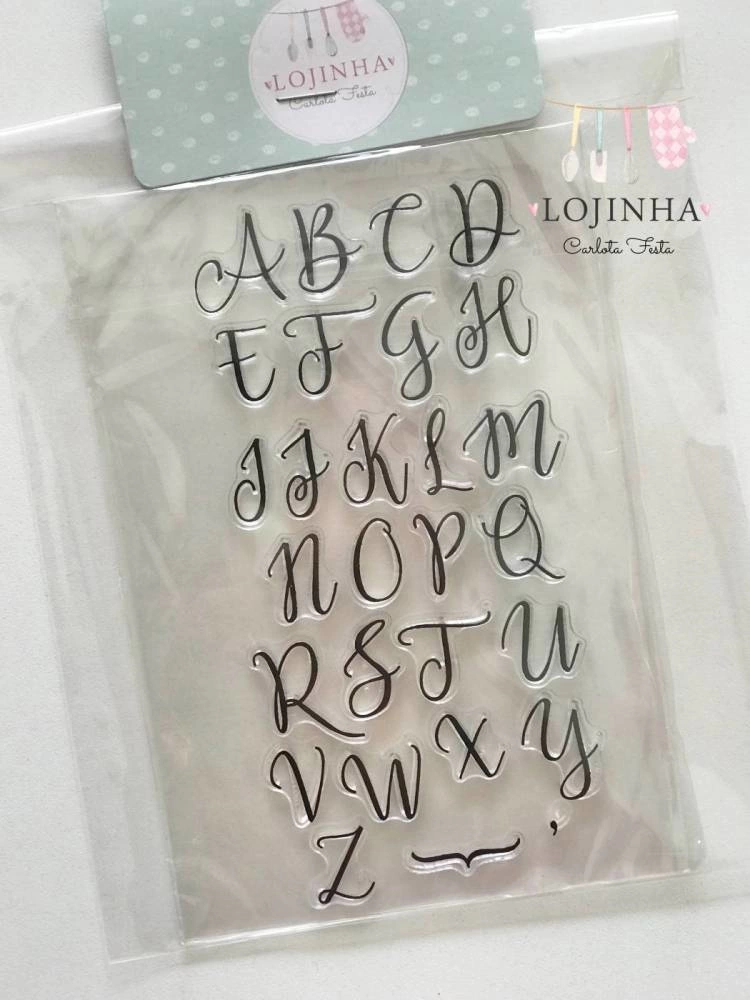 LOJINHA
Carlota Festa
LOJINHA
Carlota Festa
A B C D
E F G H
I J K L M
N O P Q
R S T U
V W X Y
Z ,